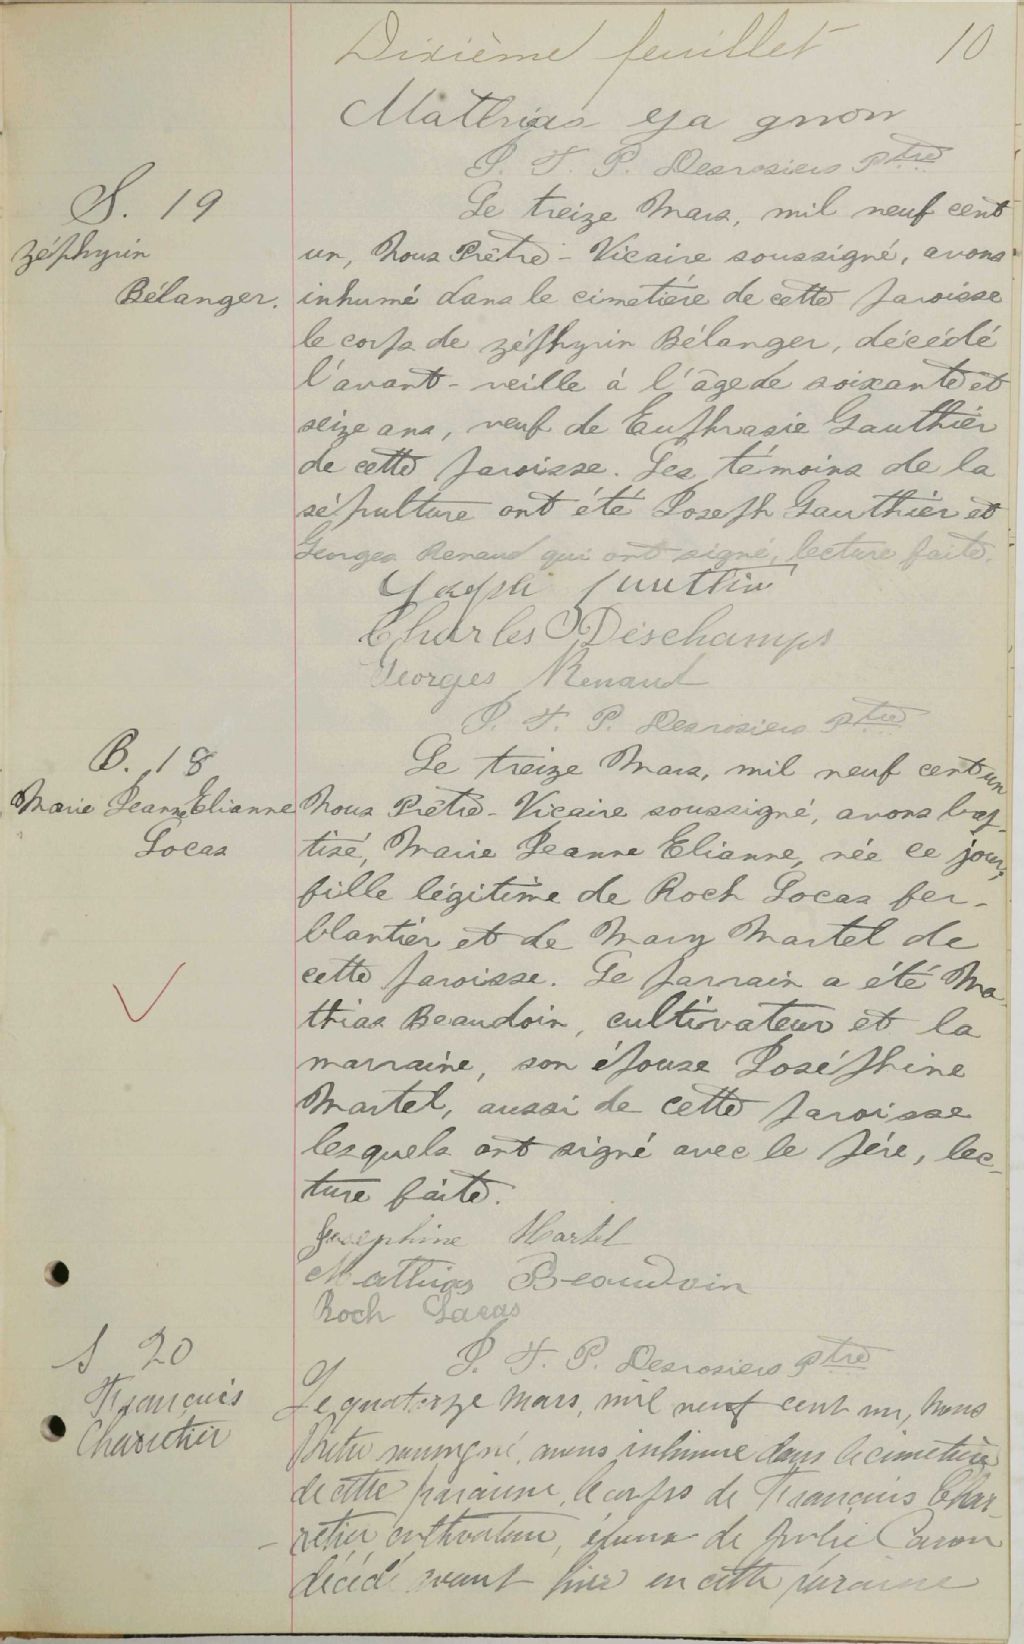 Dixième feuillet 10
Mathias Gagnon
J. T. P. Desrosiers Ptre
S. 19
Zéphyrin
Bélanger.
Le treize Mars, mil neuf cent
un, Nous Prêtre - Vicaire soussigné, avons
inhumé dans le cimetière de cette paroisse
le corps de Zéphyrin Bélanger, décédé
l'avant-veille à l'âge de soixante et
seize ans, veuf de Euphrasie Gauthier
de cette paroisse. Les témoins de la
sépulture ont été Joseph Gauthier et
Georges Renaud qui ont signé, lecture faite.
Joseph Gauthier
Charles Deschamps
Georges Renaud
J. T. P. Desrosiers Ptre
B. 18
Marie Jeanne Elianne
Locas
Le treize Mars, mil neuf cent un
Nous Prêtre - Vicaire soussigné, avons bap-
tisé, Marie Jeanne Elianne, née ce jour,
fille légitime de Roch Locas fer-
blantier et de Mary Martel de
cette paroisse. Le parrain a été Ma-
thias Beaudoin, cultivateur et la
marraine, son épouse Joséphine
Martel, aussi de cette paroisse
lesquels ont signé avec le père, lec-
ture faite.
Josephine Martel
Mathias Beaudoin
Roch Lacas
J. T. P. Desrosiers Ptre
S 20
François
Charretier
Le quatorze Mars, mil neuf cent un, Nous
Prêtre soussigné, avons inhumé dans le cimetière
de cette paroisse, le corps de François Char-
retier cultivateur, époux de Julie Caron
décédé avant hier en cette paroisse